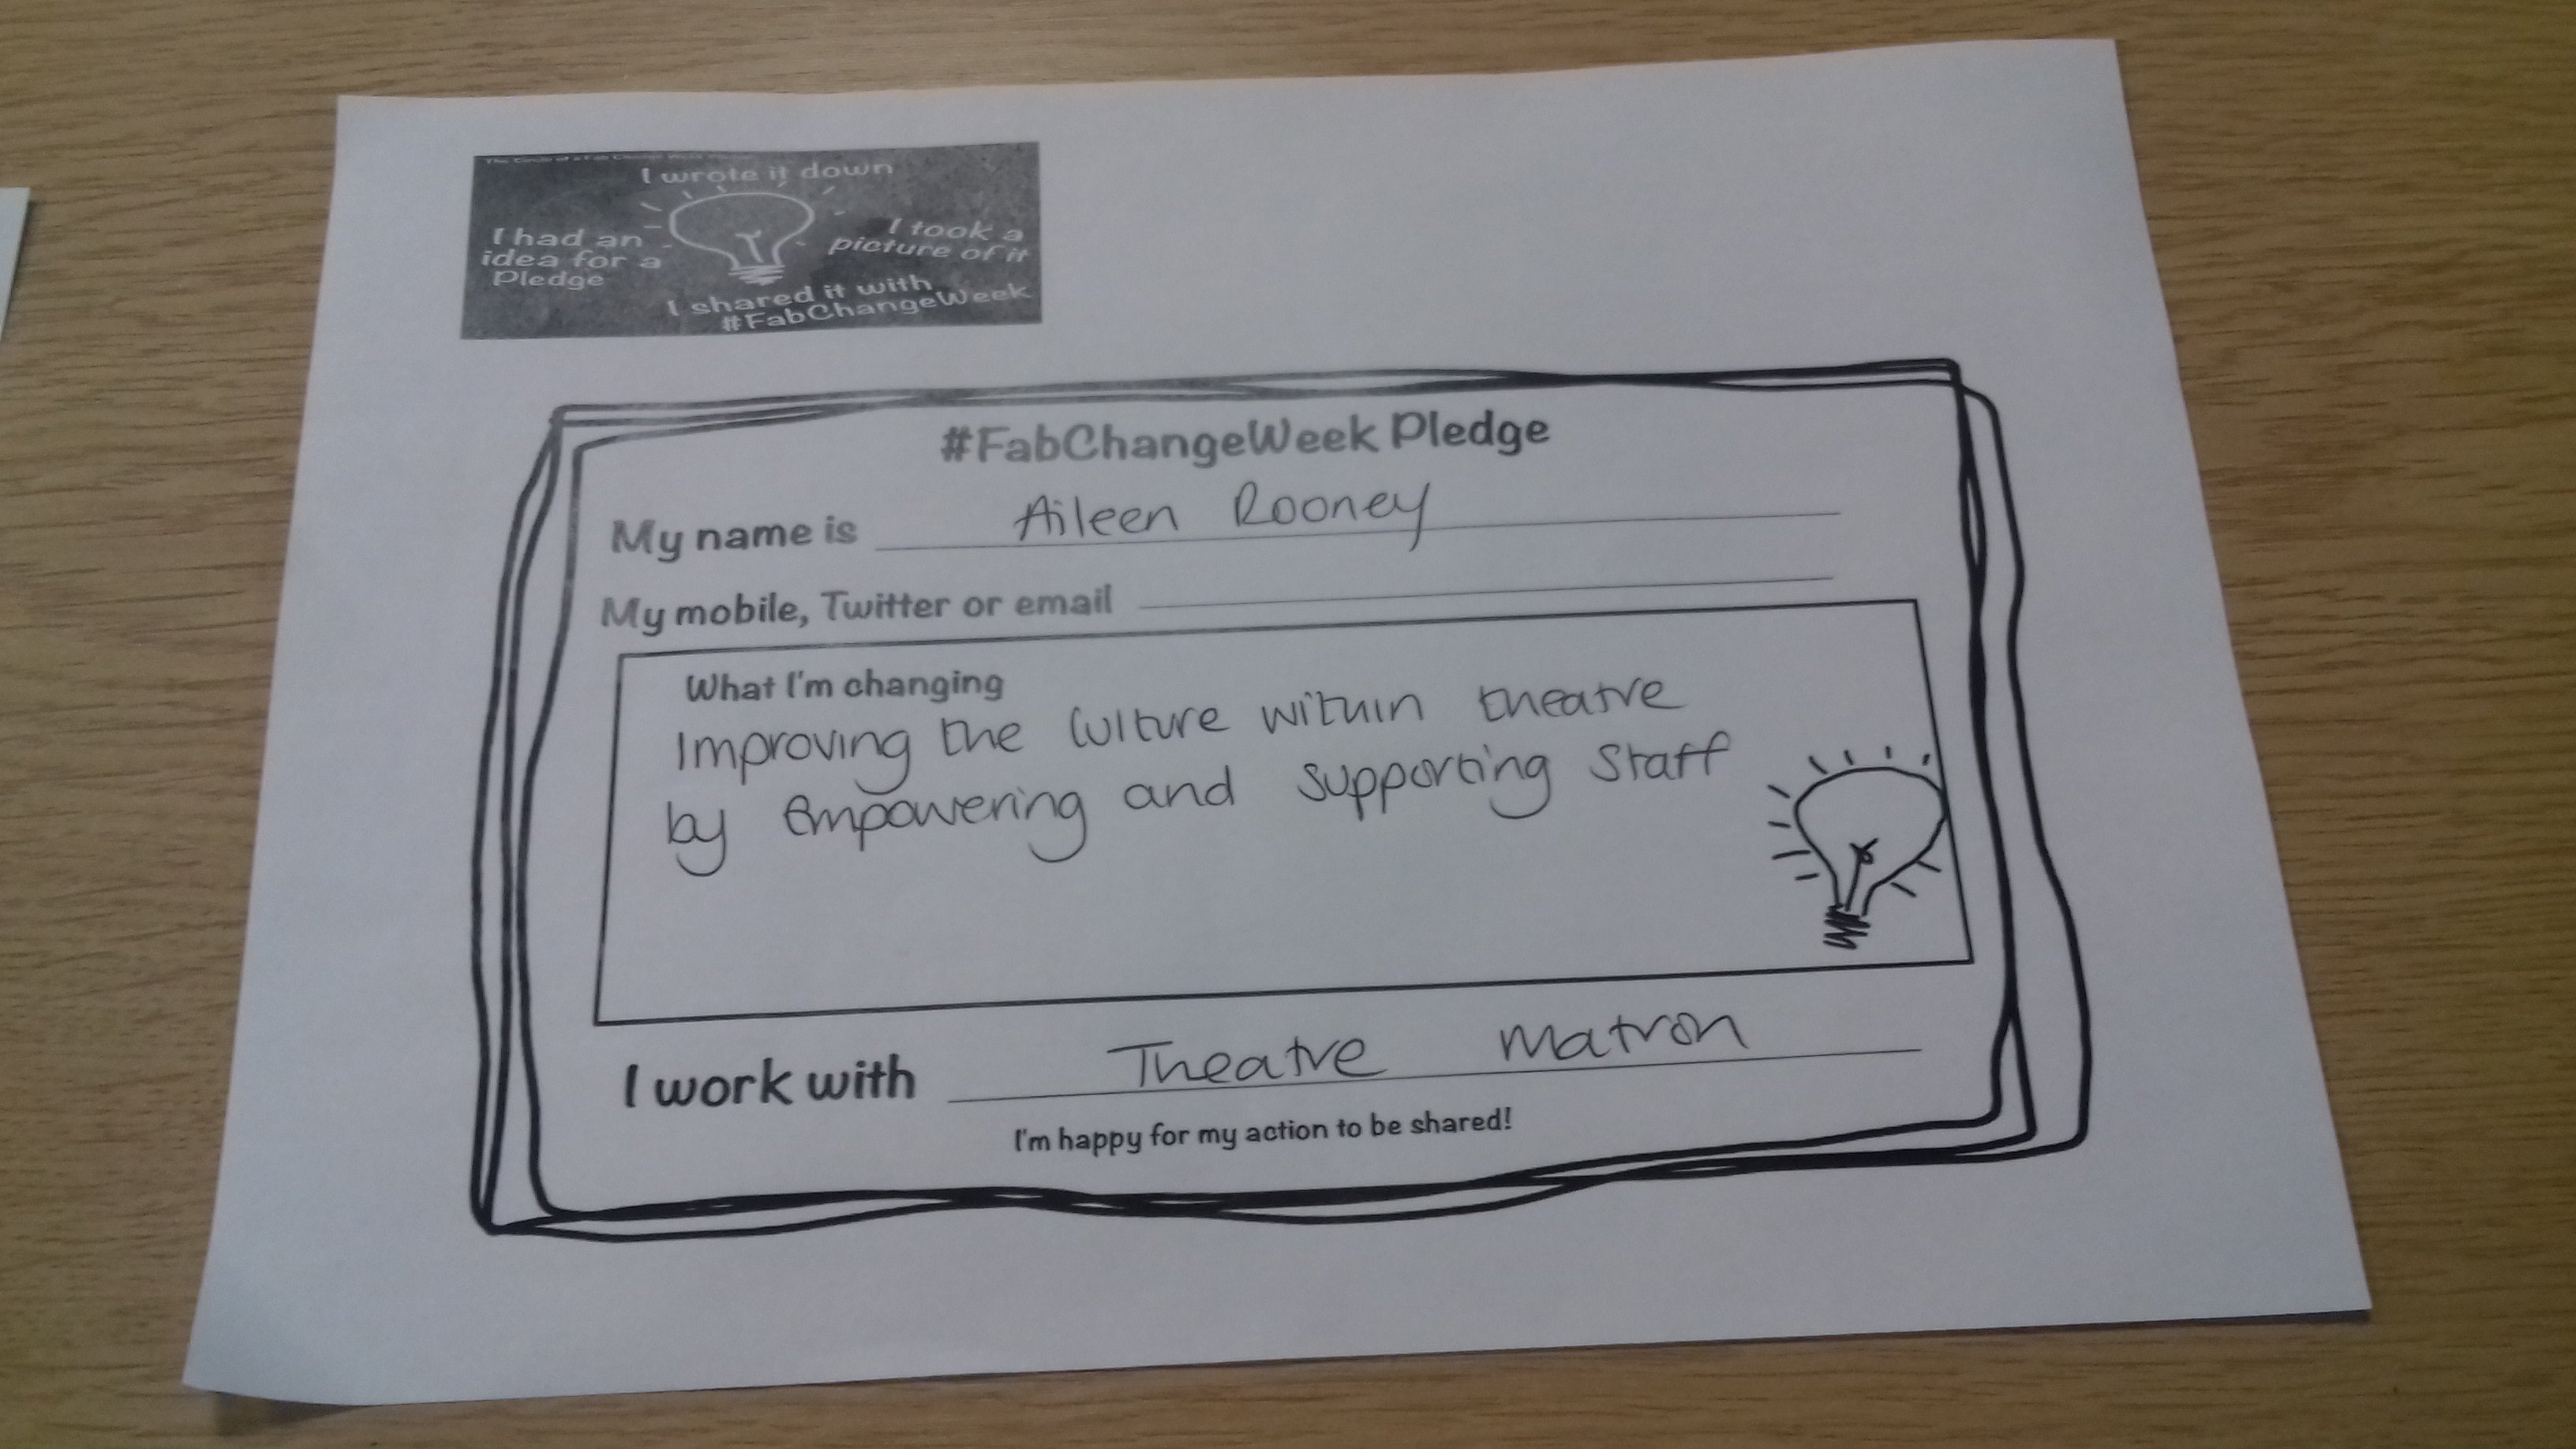 I wrote it down
I had an
idea for a
Pledge
I took a
picture of it
I shared it with
#FabChangeWeek
#FabChangeWeek Pledge
My name is Aileen Rooney
My mobile, Twitter or email
What I'm changing
Improving the culture within theatre
by Empowering and supporting staff
I work with Theatre Matron
I'm happy for my action to be shared!